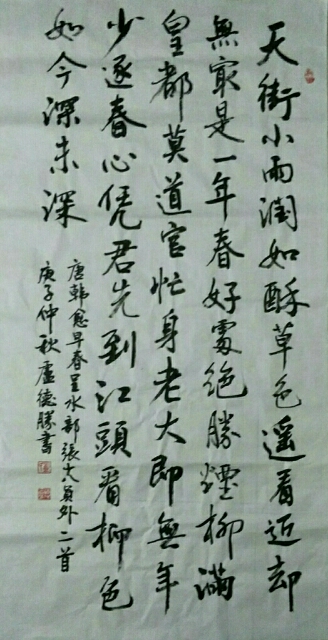 天街小雨潤如酥草色遥看近却
無最是一年春好處絶勝煙柳滿
皇都莫道官忙身老大即無年
少逐春心凭君先到江頭看柳色
如今深未深
唐韓愈早春呈水部張十八員外二首
庚子仲秋盧德勝書